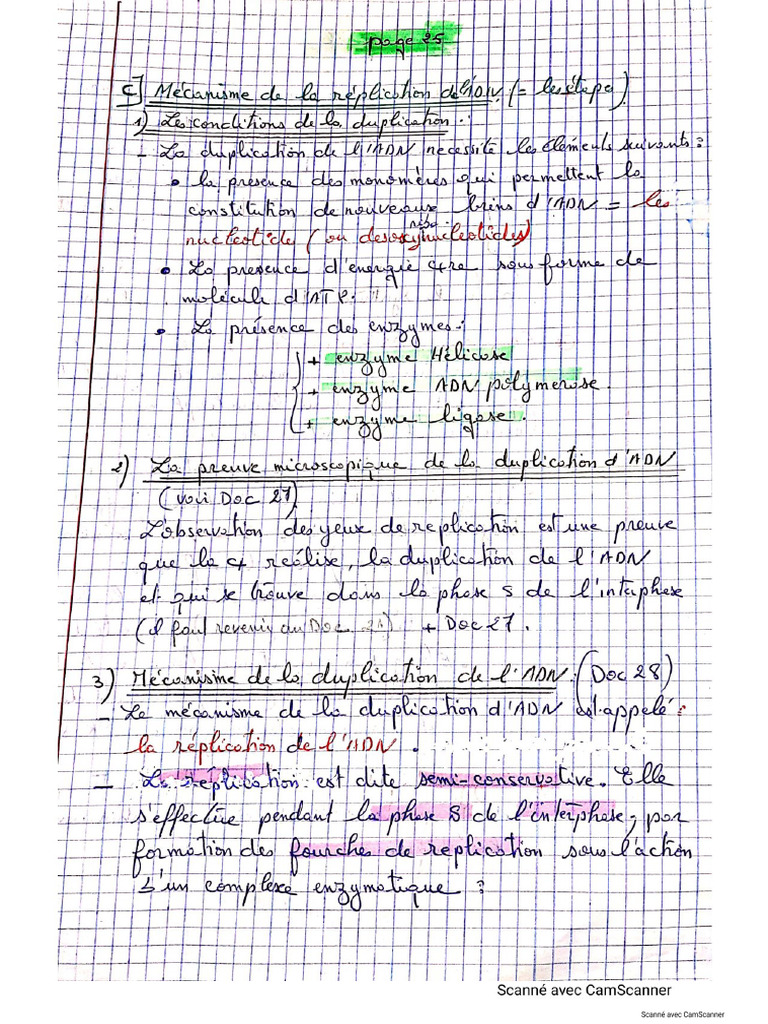 page 25
C] Mécanisme de la réplication de l'ADN. (= les étape)
1) Les conditions de la duplication :
- La duplication de l'ADN nécessite les éléments suivants :
• la presence des monomères qui permettent la
constitution de nouveaux brins d'ADN = les
nucléotide (ou desoxynucléotides)
ribo
• La presence d'énergie sous forme de
molécule d'ATP.
• La présence des enzymes :
+ enzyme Hélicase
+ enzyme ADN polymerase.
+ enzyme ligase.
2) La preuve microscopique de la duplication d'ADN
(voir Doc 27)
L'observation des yeux de replication est une preuve
que la réalise, la duplication de l'ADN
et qui se trouve dans la phase S de l'interphase
(il faut revenir au Doc) + Doc 27.
3) Mécanisme de la duplication de l'ADN. (Doc 28)
- Le mécanisme de la duplication d'ADN est appelé :
la réplication de l'ADN.
- La réplication est dite semi-conservative. Elle
s'effectue pendant la phase S de l'interphase, par
formation des fourches de replication sous l'action
d'un complexe enzymatique :
Scanné avec CamScanner
Scanné avec CamScanner